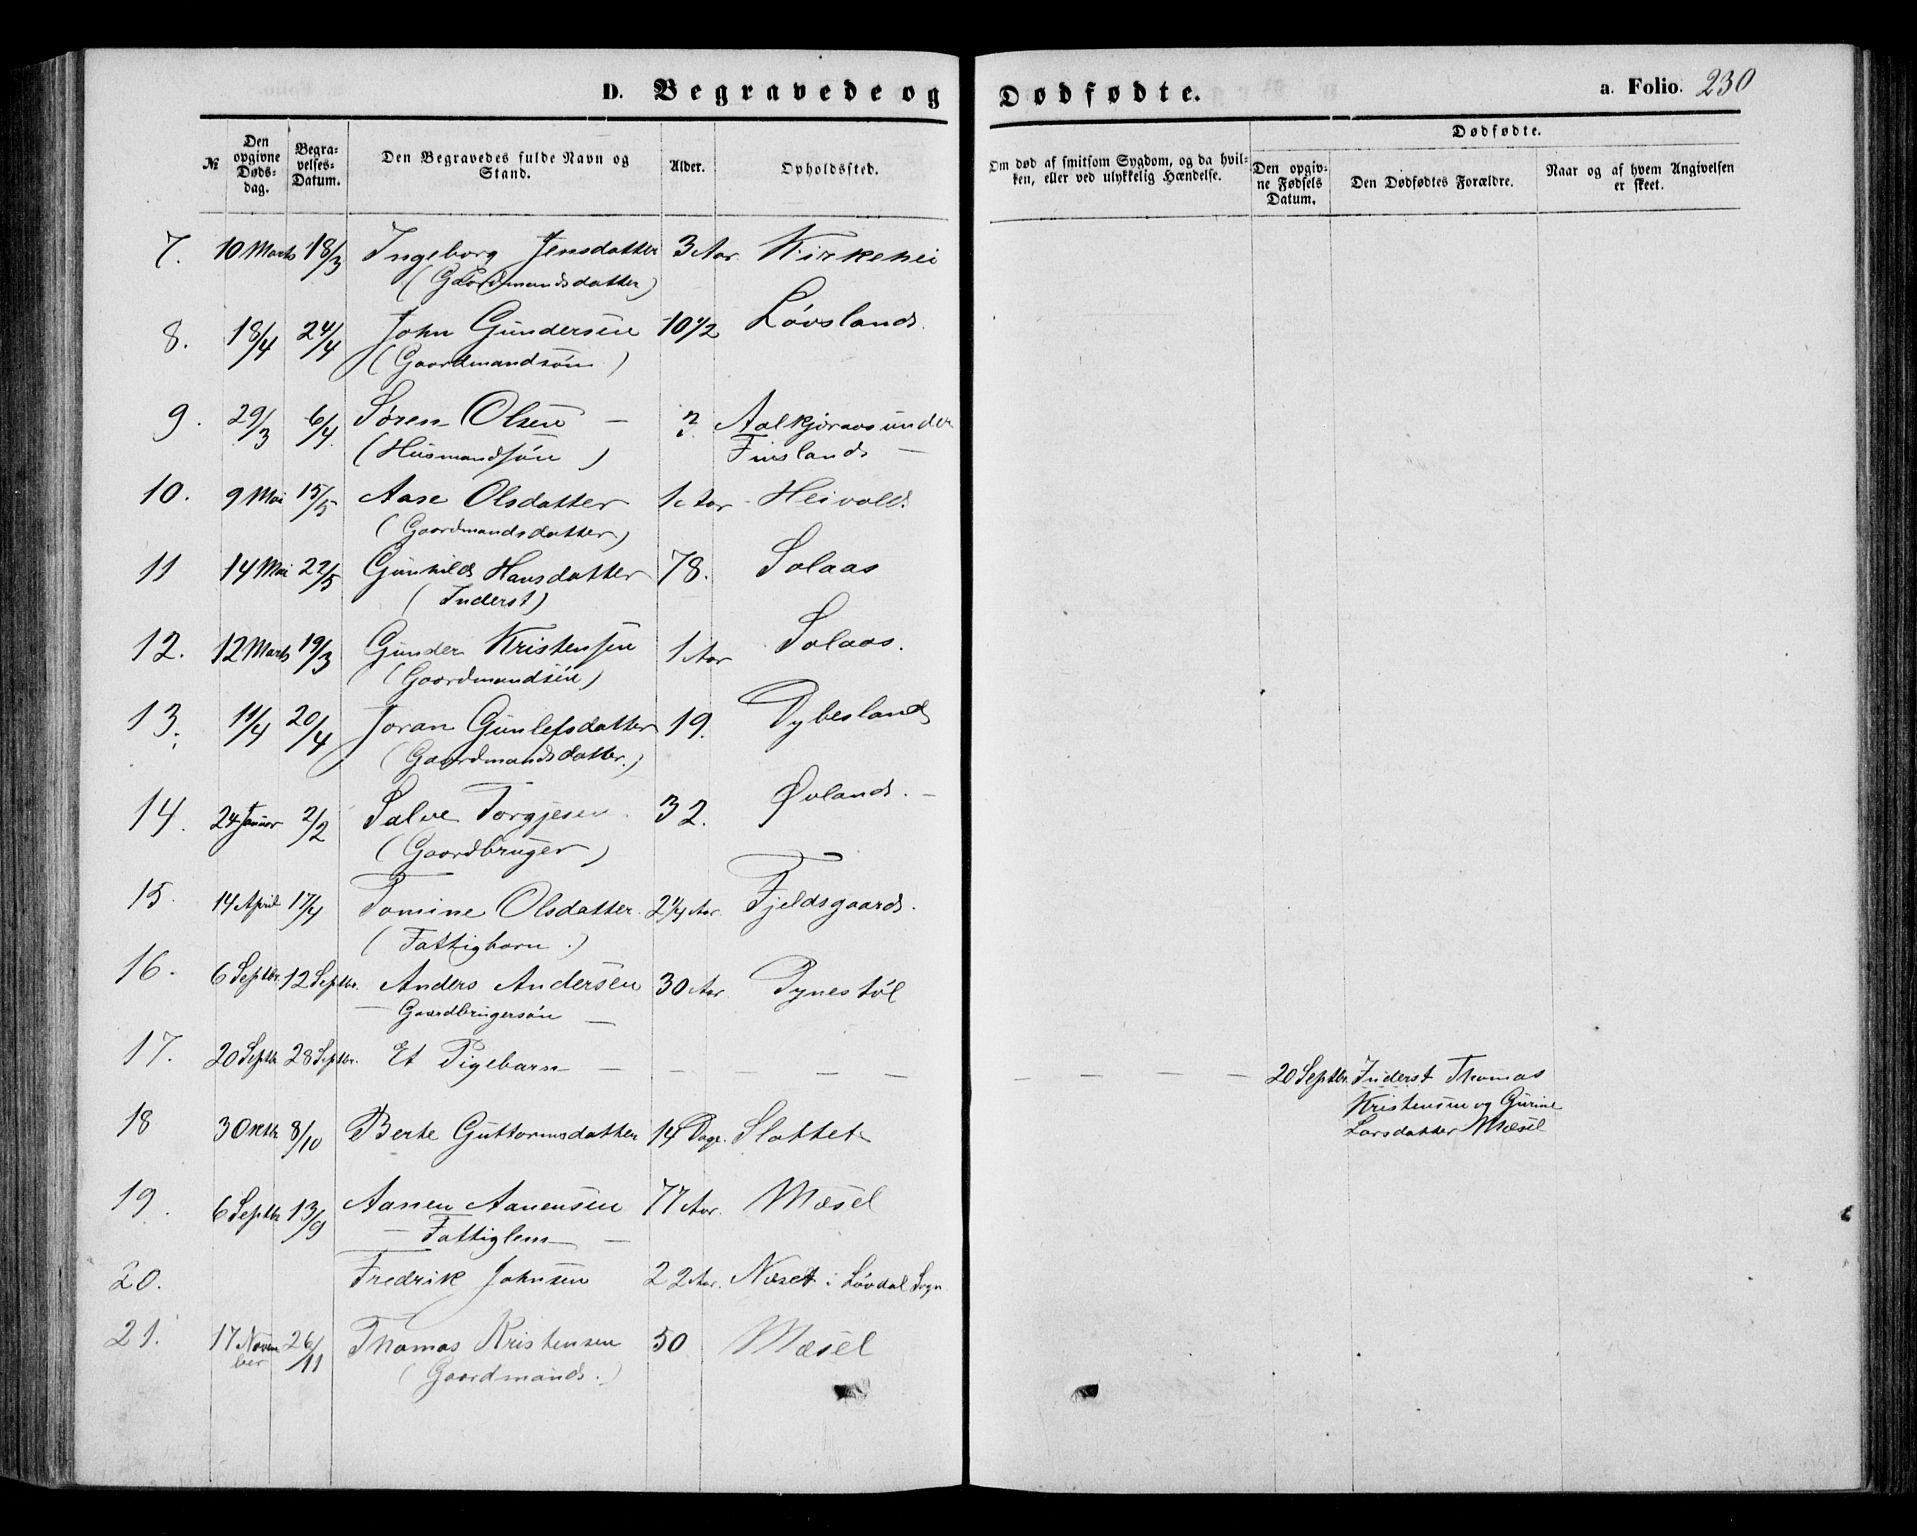 D. Begravede og Dødfødte. a. Folio. 230
№
Den opgivne Døds-dag.
Begra-velses-Datum.
Den Begravedes fulde Navn og Stand.
Alder.
Opholdssted.
Om død af smitsom Sygdom, og da hvil-
ken, eller ved ulykkelig Hændelse.
Dødfødte.
Den opgiv-ne Fødsels Datum.
Den Dødfødtes Forældre.
Naar og af hvem Angivelsen er skeet.
7. 10 Marts 18/3 Ingeborg Jensdatter 3 Aar Kirkehei
(Gaardmandsdatter)
8. 18/4 24/4 John Gundersen 10 1/2 Løvsland.
(Gaardmandsøn)
9. 29/3 6/4 Søren Olsen — 3. Aalkjæraas under
(Husmandsøn) Finsland —
10. 9 Mai 15/5 Aase Olsdatter 1 Aar Heivold.
(Gaardmandsdatter)
11 14 Mai 22/5 Gunhild Hansdatter 78. Solaas
(Inderst)
12. 12 Marts 19/3 Gunder Kristensen 1 Aar Solaas.
(Gaardmandsøn)
13. 11/4 20/4 Joran Gunlefsdatter 19. Dybesland
(Gaardmandsdatter.)
14. 24 Januar 2/2 Salve Torgjesen 32. Øvland. —
(Gaardbruger)
15. 14 April 17/4 Tomine Olsdatter 2 1/4 Aar. Fjeldsgaard.
(Fattigbarn.)
16. 6 Septbr. 12 Septbr. Anders Andersen 30 Aar. Tynestøl
— Gaardbrugersøn —
17. 20 Septbr 28 Septbr. Et Pigebarn — — — — — — — — 20 Septbr. Inderst Thomas
Kristensen og Gurine
Larsdatter Mæsel
18 3 Oktbr 8/10 Berte Guttormsdatter 14 Dage. Slottet
19. 6 Septbr 13/9 Aanen Aanensen 77 Aar. Mæsel
— Fattiglem —
20. Fredrik Johnsen 22 Aar. Næset i Løvdal Sogn
21. 17 Novem 26/11 Thomas Kristensen 50 Mæsel
ber (Gaardmand.)